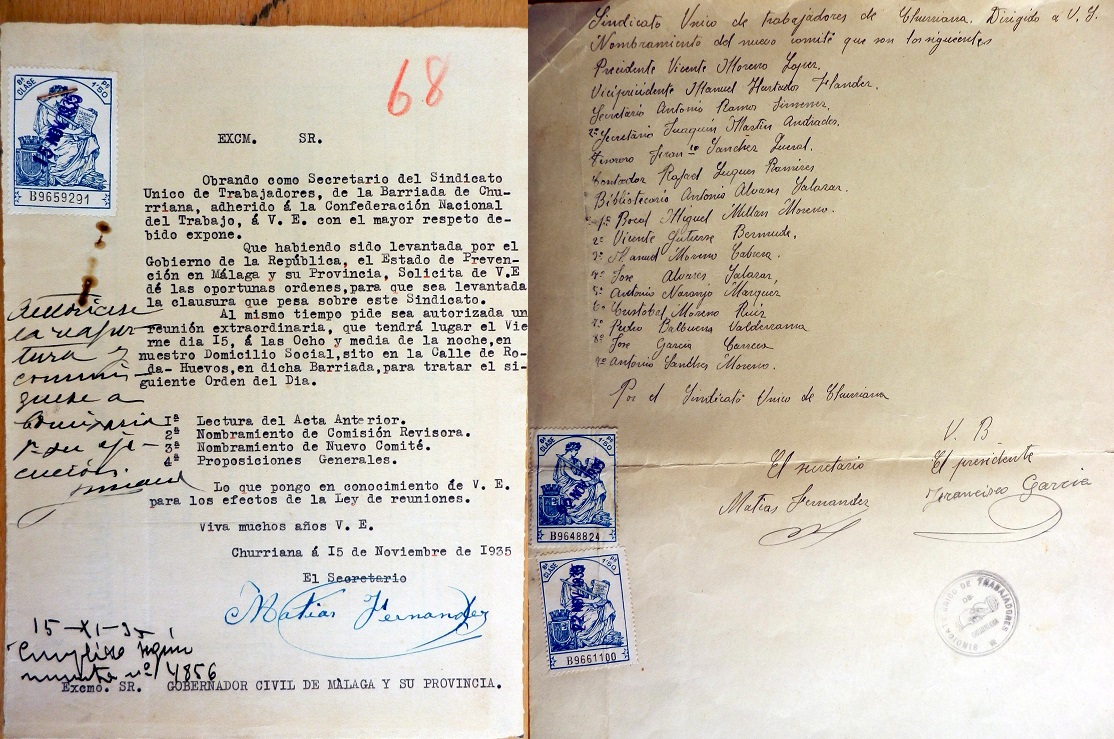 68
8ª CLASE 1'50 Pª
15 NOV 1935
B9659291
EXCM. SR.
Obrando como Secretario del Sindicato
Unico de Trabajadores, de la Barriada de Chu-
rriana, adherido á la Confederación Nacional
del Trabajo, á V. E. con el mayor respeto de-
bido expone.
Que habiendo sido levantada por el
Gobierno de la República, el Estado de Preven-
ción en Málaga y su Provincia, Solicita de V.E
dé las oportunas ordenes,para que sea levantada
la clausura que pesa sobre este Sindicato.
Al mismo tiempo pide sea autorizada un
reunión extraordinaria, que tendrá lugar el Vie
rne dia I5, á las Ocho y media de la noche,en
nuestro Domicilio Social,sito en la Calle de Ro-
da- Huevos,en dicha Barriada,para tratar el si-
guiente Orden del Dia.
1ª Lectura del Acta Anterior.
2ª Nombramiento de Comisión Revisora.
3ª Nombramiento de Nuevo Comité.
4ª Proposiciones Generales.
Lo que pongo en conocimiento de V. E.
para los efectos de la Ley de reuniones.
Viva muchos años V. E.
Churriana á I5 de Noviembre de I935
El Secretario
Matias Fernandez
Autoricese
la reaper
tura y
comuni-
quese a
Comisaria
pª su eje-
cución.
15-XI-35
Cumplido según
minuta nº 4856
Excmo. SR. GOBERNADOR CIVIL DE MÁLAGA Y SU PROVINCIA.
Sindicato Unico de trabajadores de Churriana. Dirigido a V. S.
Nombramiento del nuevo comité que son los siguientes
Precidente Vicente Moreno Lopez.
Viciprecidente Manuel Hurtados Flander.
Secretario Antonio Ramos Simenez.
2º Secretario Juaquin Martin Andrades.
Tesorero Franco Sanchez Queral.
Contador Rafael Luques Ramires
Bibliotecario Antonio Alvares Salazar.
1º Bocal Miguel Millan Moreno.
2º Vicente Gutierre Bermude.
3º Manuel Moreno Cabrera.
4º Jose Alvares Salazar,
5º Antonio Naranjo Marquez
6º Cristobal Moreno Ruiz
7º Pedro Balbuena Valderrama
8º Jose Garcia Carrera
9º Antonio Sanches Moreno.
Por el Sindicato Unico de Churriana
V. B
El secretario El presidente
Matias Fernandez Francisco Garcia
8ª CLASE 1'50
B9648824
8ª CLASE 1'50
22 NOV 1935
B9661100
SINDICATO UNICO DE TRABAJADORES